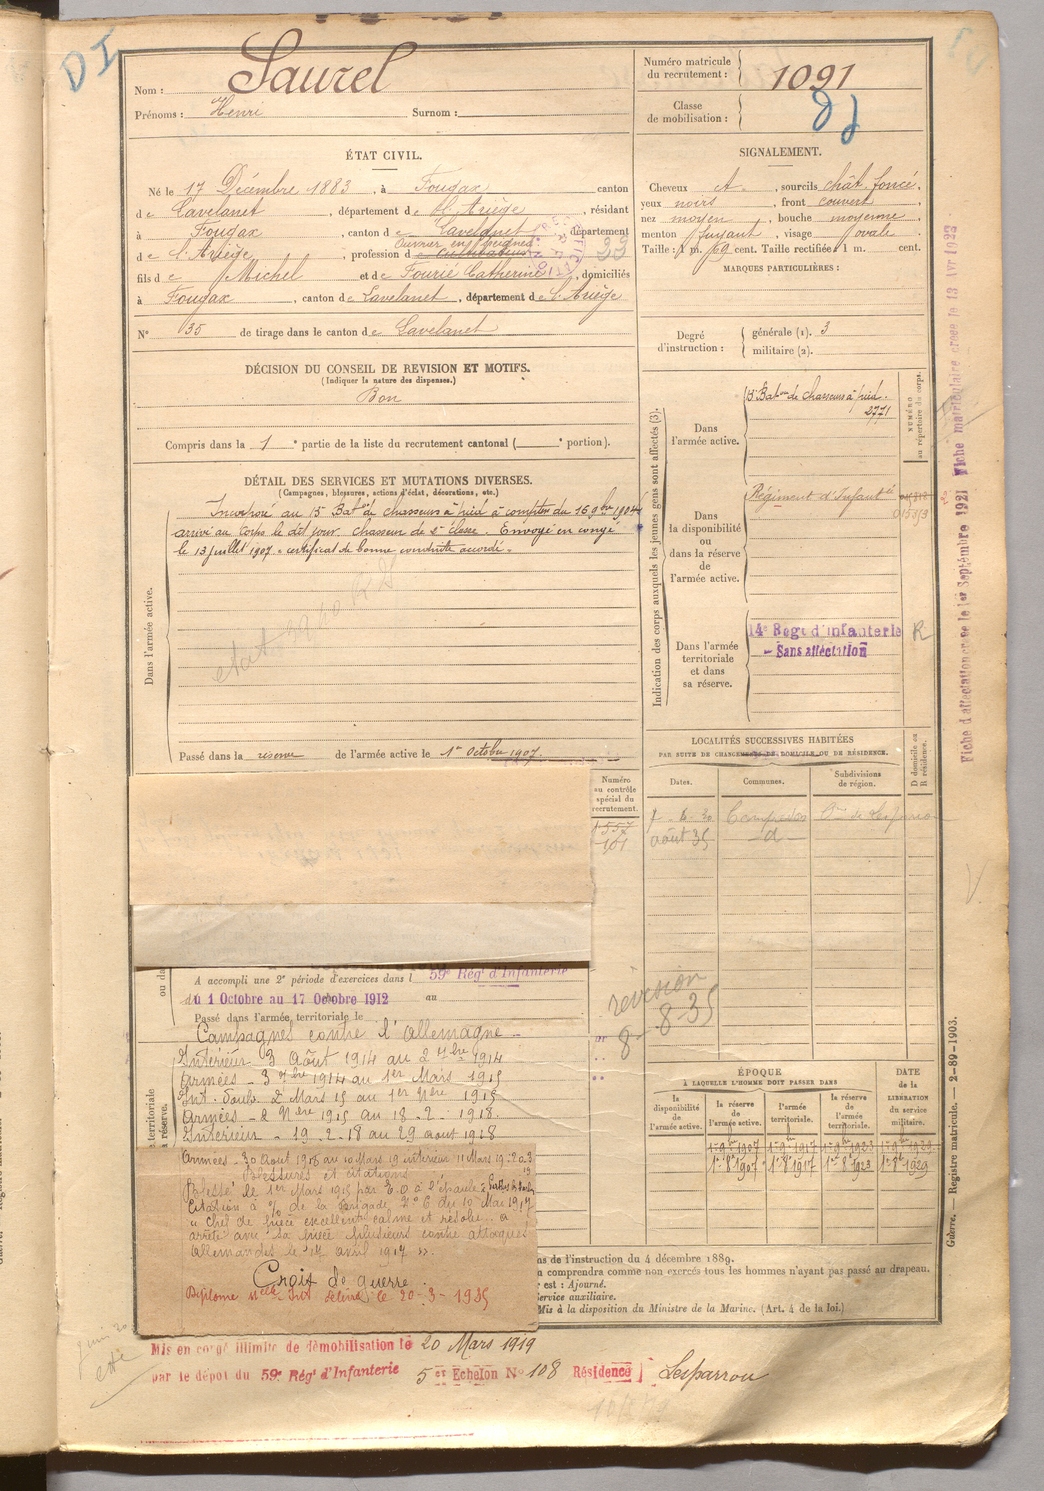 DI
Nom : Saurel
Prénoms : Henri Surnom :
Numéro matricule du recrutement : 1091
Classe de mobilisation :
ÉTAT CIVIL.
Né le 17 Décembre 1883, à Fougax canton
de Lavelanet, département de l'Ariège, résidant
à Fougax, canton de Lavelanet, département
Ouvrier en peignes
de l'Ariège, profession de cultivateur 33
fils de Michel et de Fourié Catherine, domiciliés
à Fougax, canton de Lavelanet, département de l'Ariège
N° 35 de tirage dans le canton de Lavelanet
SIGNALEMENT.
Cheveux ct., sourcils chât. foncé,
yeux noirs, front couvert
nez moyen, bouche moyenne
menton fuyant, visage ovale.
Taille : 1 m. 69 cent. Taille rectifiée 1 m. cent.
MARQUES PARTICULIÈRES :
Degré d'instruction : générale (1). 3
militaire (2).
DÉCISION DU CONSEIL DE REVISION ET MOTIFS.
(Indiquer la nature des dispenses.)
Bon
Compris dans la 1 e partie de la liste du recrutement cantonal ( e portion).
DÉTAIL DES SERVICES ET MUTATIONS DIVERSES.
(Campagnes, blessures, actions d'éclat, décorations, etc.)
Dans l'armée active.
Incorporé au 15e Bat. de chasseurs à pied à compter du 16 9bre 1904
arrivé au Corps le dit jour. chasseur de 2e classe. Envoyé en congé
le 13 juillet 1907. certificat de bonne conduite accordé.
Passé dans la réserve de l'armée active le 1er Octobre 1907.
Indication des corps auxquels les jeunes gens sont affectés (3).
NUMÉRO au répertoire du corps.
Dans l'armée active.
15e Baton de chasseurs à pied.
2771
Dans la disponibilité ou dans la réserve de l'armée active.
Régiment d'Infantie
Dans l'armée territoriale et dans sa réserve.
14e Regt d'infanterie R
- Sans affectation
LOCALITÉS SUCCESSIVES HABITÉES
PAR SUITE DE CHANGEMENTS DE DOMICILE OU DE RÉSIDENCE.
Dates. Communes. Subdivisions de région. D domicile ou R résidence.
août 35 -d-
Numéro au contrôle spécial du recrutement.
A accompli une 2e période d'exercices dans l 59e Régt d'Infanterie
du 1 Octobre au 17 Octobre 1912 au
Passé dans l'armée territoriale le
Campagnes contre l'Allemagne -
Intérieur 3 Août 1914 au 2 7bre 1914
Armées - 3 7bre 1914 au 1er Mars 1915
Armées - 2 9bre 1915 au 18-2-1918.
Intérieur - 19-2-18 au 29 août 1918
Armées - 30 Août 1918 au 10 Mars 19 intérieur 11 Mars 19
Blessures et citations
Blessé le 1er Mars 1915 par E.O à l'épaule
Citation à l'o/ de la Brigade N° 6 du 10 Mai 1917
" Chef de pièce excellent calme et résolu a
arrêté avec sa pièce plusieurs contre attaques
Allemandes le 17 avril 1917 ".
Croix de guerre.
révision
8-8-35
ÉPOQUE
À LAQUELLE L'HOMME DOIT PASSER DANS
la disponibilité de l'armée active.
la réserve de l'armée active.
l'armée territoriale.
la réserve de l'armée territoriale.
DATE de la LIBÉRATION du service militaire.
1-9bre 1907 1-9bre 1917 1-9bre 1923 1-9bre 1929
1er 8bre 1907 1er 8bre 1917 1er 8bre 1923 1er 8bre 1929
ns de l'instruction du 4 décembre 1889.
n comprendra comme non exercés tous les hommes n'ayant pas passé au drapeau.
r est : Ajourné.
Service auxiliaire.
Mis à la disposition du Ministre de la Marine. (Art. 4 de la loi.)
Mis en congé illimité de démobilisation le 20 Mars 1919
par le dépôt du 59e Régt d'Infanterie 5 er Echelon N° 108 Résidence Lesparrou
Fiche d'affectation créée le 1er Septembre 1921 Fiche matriculaire créée le 13 Avr 1923
Guerre. — Registre matricule. — 2-89-1903.